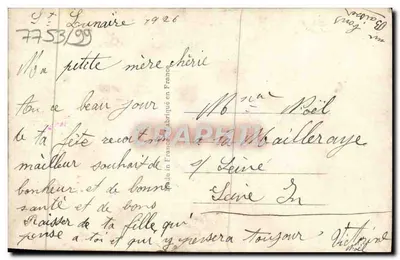 St Lunaire 1926
7753/99
un bons
Baiser
Ma petite mère chérie
Au ce beau jour
de ta fête recoit mes
mailleur souhait de
bonheur et de bonne
santé et de bons
Baiser de ta fille qui
pense a toi et qui y pensera toujour
Victorine
Noël
Mme Noël
a la Mailleraye
s/ Seine
Seine In
Fabriqué en France
CARTEPRO